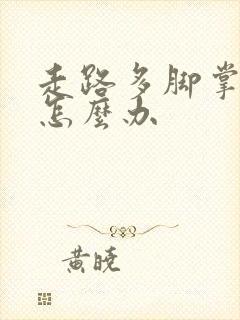 走路多脚掌
怎麼办
黄晓